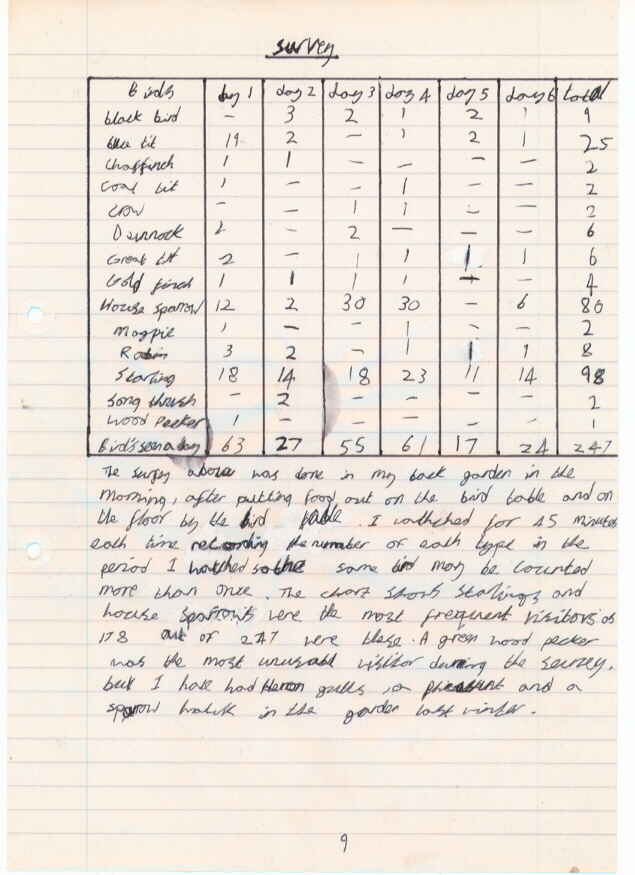 Survey
Birds day 1 day 2 day 3 day 4 day 5 day 6 total
black bird - 3 2 1 2 1 9
blue tit 19 2 - 1 2 1 25
Chaffinch 1 1 - - - - 2
Coal tit 1 - - 1 - - 2
Crow - - 1 1 - - 2
Dunnock 2 - 2 - - - 6
Great tit 2 - 1 1 1 1 6
Gold finch 1 1 1 1 - 4
House sparrow 12 2 30 30 - 6 80
Magpie 1 - - 1 - - 2
Robin 3 2 - 1 1 1 8
Starling 18 14 18 23 11 14 98
Song thrush - 2 - - - - 2
Wood Pecker 1 - - - - - 1
Bird's seen a day 63 27 55 61 17 24 247
The survey above was done in my back garden in the
morning, after putting food out on the bird table and on
the floor by the bird table. I wathched for 45 minutes
each time recording the number of each type in the
period I watched so the same bird may be counted
more than once. The chart shows starlings and
house sparrows were the most frequent visitors as
178 out of 247 were these. A green wood pecker
was the most unusual visitor during the survey,
but I have had Heron gulls, a pheasant and a
sparrow hawk in the garden last winter.
9